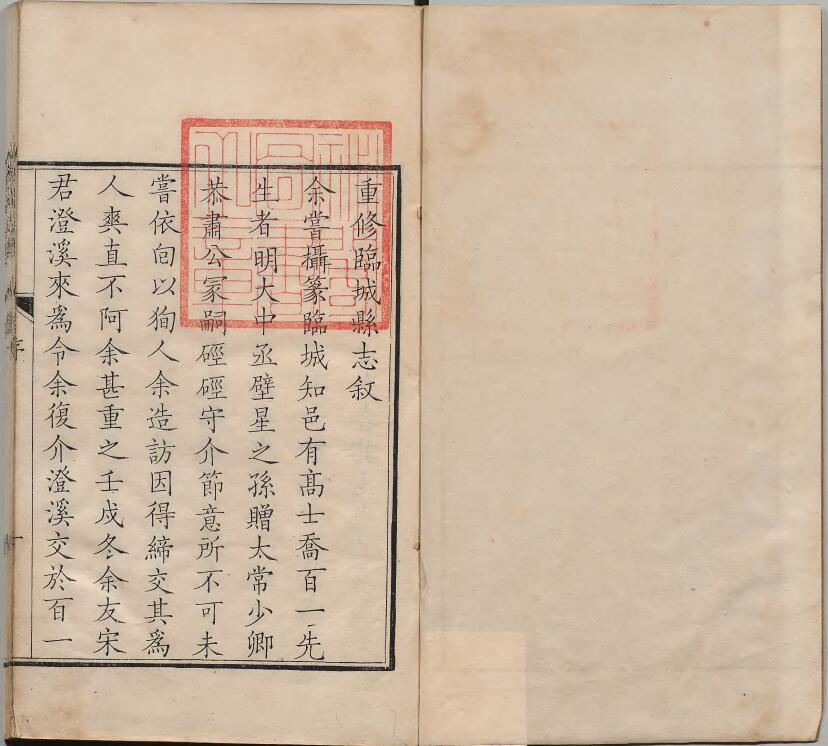 重修臨城縣志叙
余嘗攝篆臨城知邑有髙士喬百一先
生者明大中丞壁星之孫贈太常少卿
恭肅公冢嗣硜硜守介節意所不可未
嘗依囘以狥人余造訪因得締交其爲
人爽直不阿余甚重之壬戍冬余友宋
君澄溪來爲令余復介澄溪交於百一
序
一